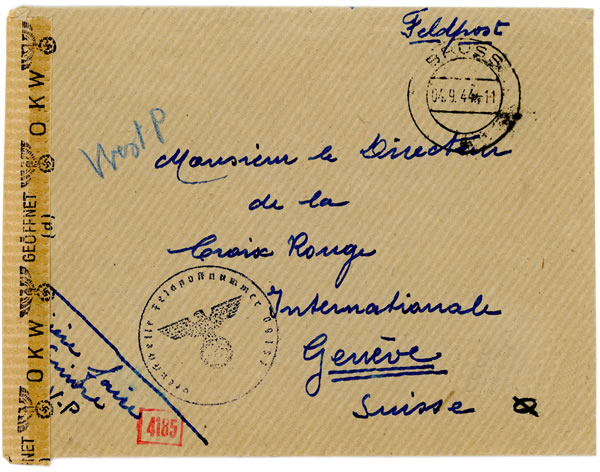 Feldpost
BRÜSS
04.9.44.-11
West P
Monsieur le Directeur
de la
Croix Rouge
Internationale
Genève
Suisse
Feldpostnummer
4185
OKW
GEÖFFNET
(d)
OKW
NET